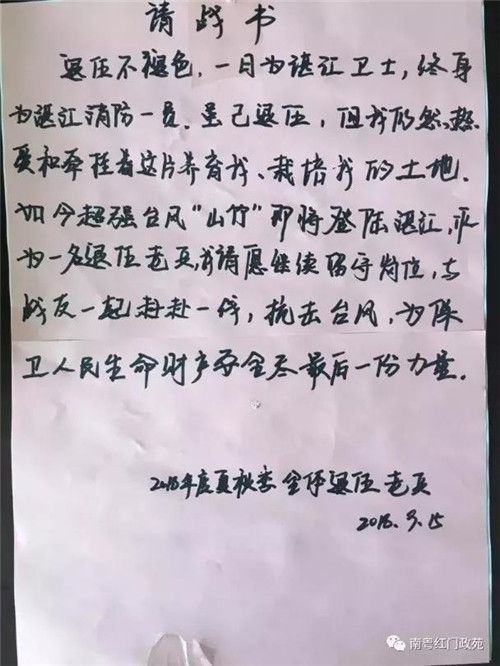 请战书
退伍不褪色，一日为湛江卫士，终身
为湛江消防一员。虽已退伍，但我仍然热
爱和牵挂着这片养育我、栽培我的土地。
如今超强台风“山竹”即将登陆湛江，作
为一名退伍老兵我请愿继续留守岗位，与
战友一起赴一线，抗击台风，为保
卫人民生命财产安全尽最后一份力量。
2018年度夏秋季全体退伍老兵
2018.9.15
南粤红门政苑